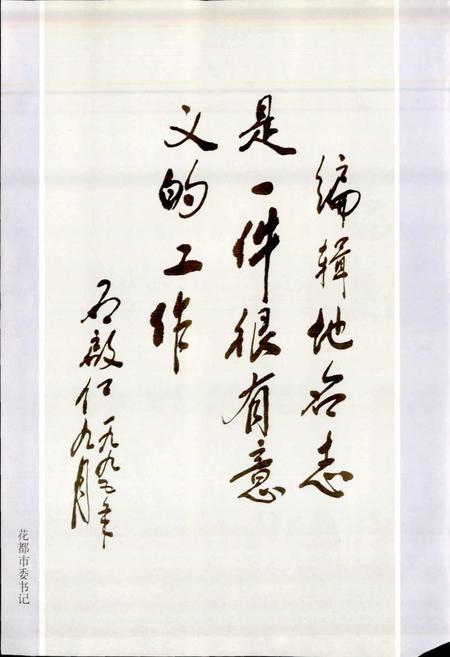 编辑地名志
是一件很有意
义的工作
石啟仁
一九九五年
九月
花都市委书记